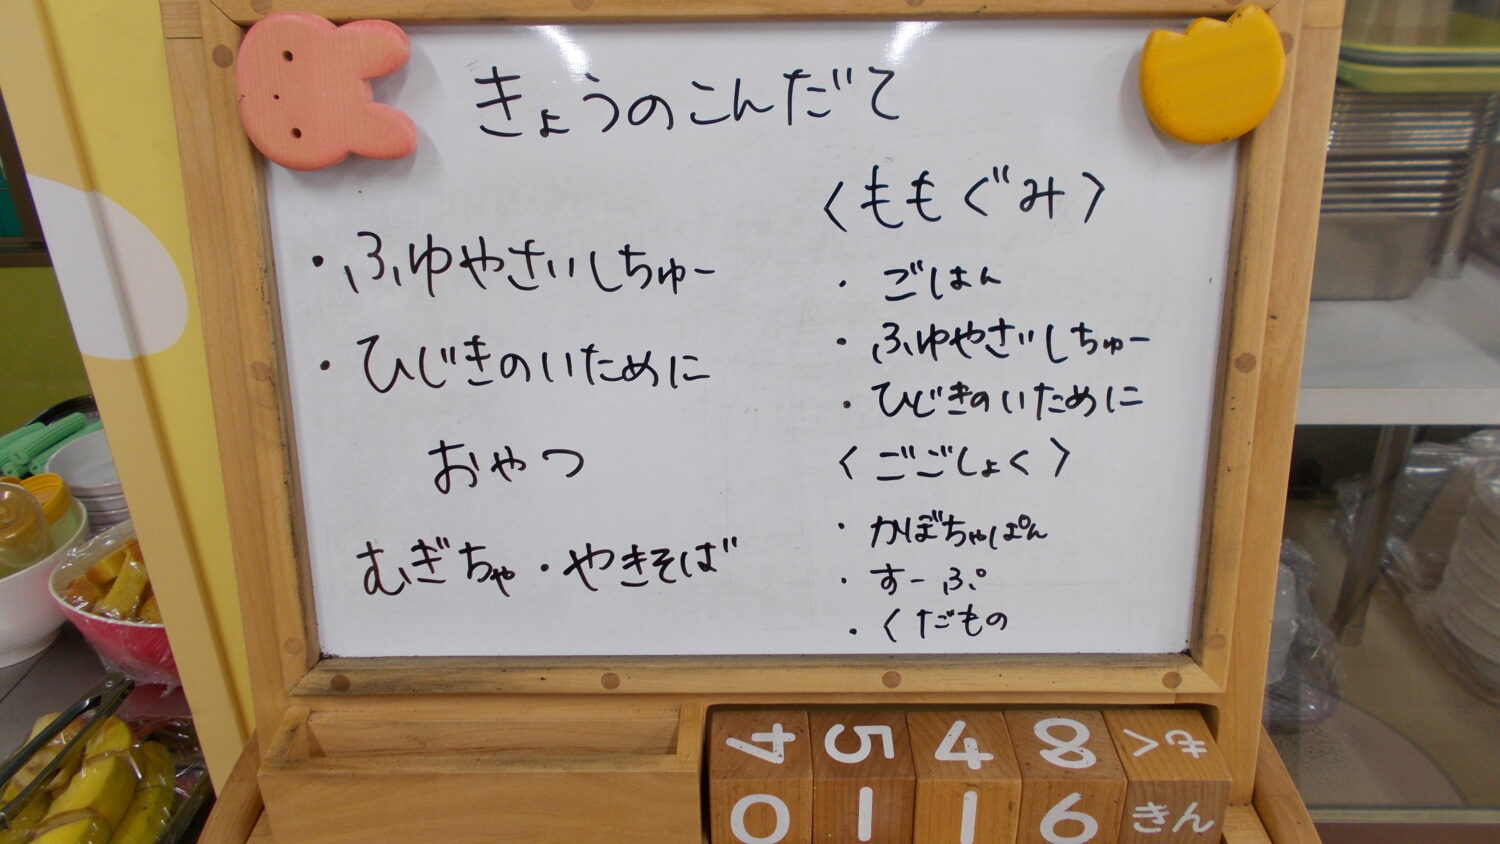 きょうのこんだて
・ふゆやさいしちゅー
・ひじきのいために
おやつ
むぎちゃ・やきそば
〈ももぐみ〉
・ごはん
・ふゆやさいしちゅー
・ひじきのいために
〈ごごしょく〉
・かぼちゃぱん
・すーぷ
・くだもの
4 5 4 8
0 1 1 6 きん